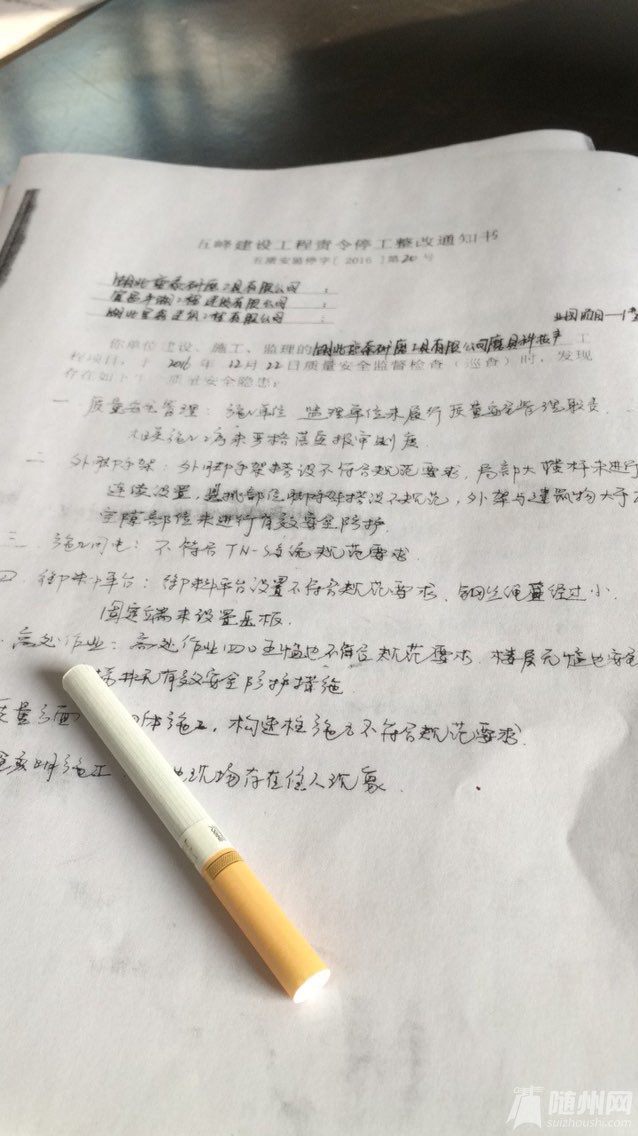 五峰建设工程责令停工整改通知书
五质安监停字[2016]第20号
有限公司:
工程建设有限公司:
湖北宏 建筑工程有限公司:
你单位建设、施工、监理的 有限公司 工
程项目,于2016年12月22日质量安全监督检查(巡查)时,发现
存在如下 安全隐患:
一 质量安全管理:施工单位 监理单位未履行质量安全管理职责
施工方案严格落实报审制度
二 外脚手架:外脚手架搭设不符合规范要求,局部大横杆未进行
连续设置,悬挑部位脚手架搭设不规范,外架与建筑物大于
空隙部位未进行有效安全防护
三 施工用电:不符合TN-S系统规范要求
四 卸料平台:卸料平台设置不符合规范要求,钢丝绳 经过小
固定端未设置垫板.
高处作业:高处作业四口五临边不符合规范要求.楼层无临边安全
井无有效安全防护措施
质量方面 体施工,构造柱施工不符合规范要求.
文明施工 现场存在住人现象.
随州网
suizhoushi.com